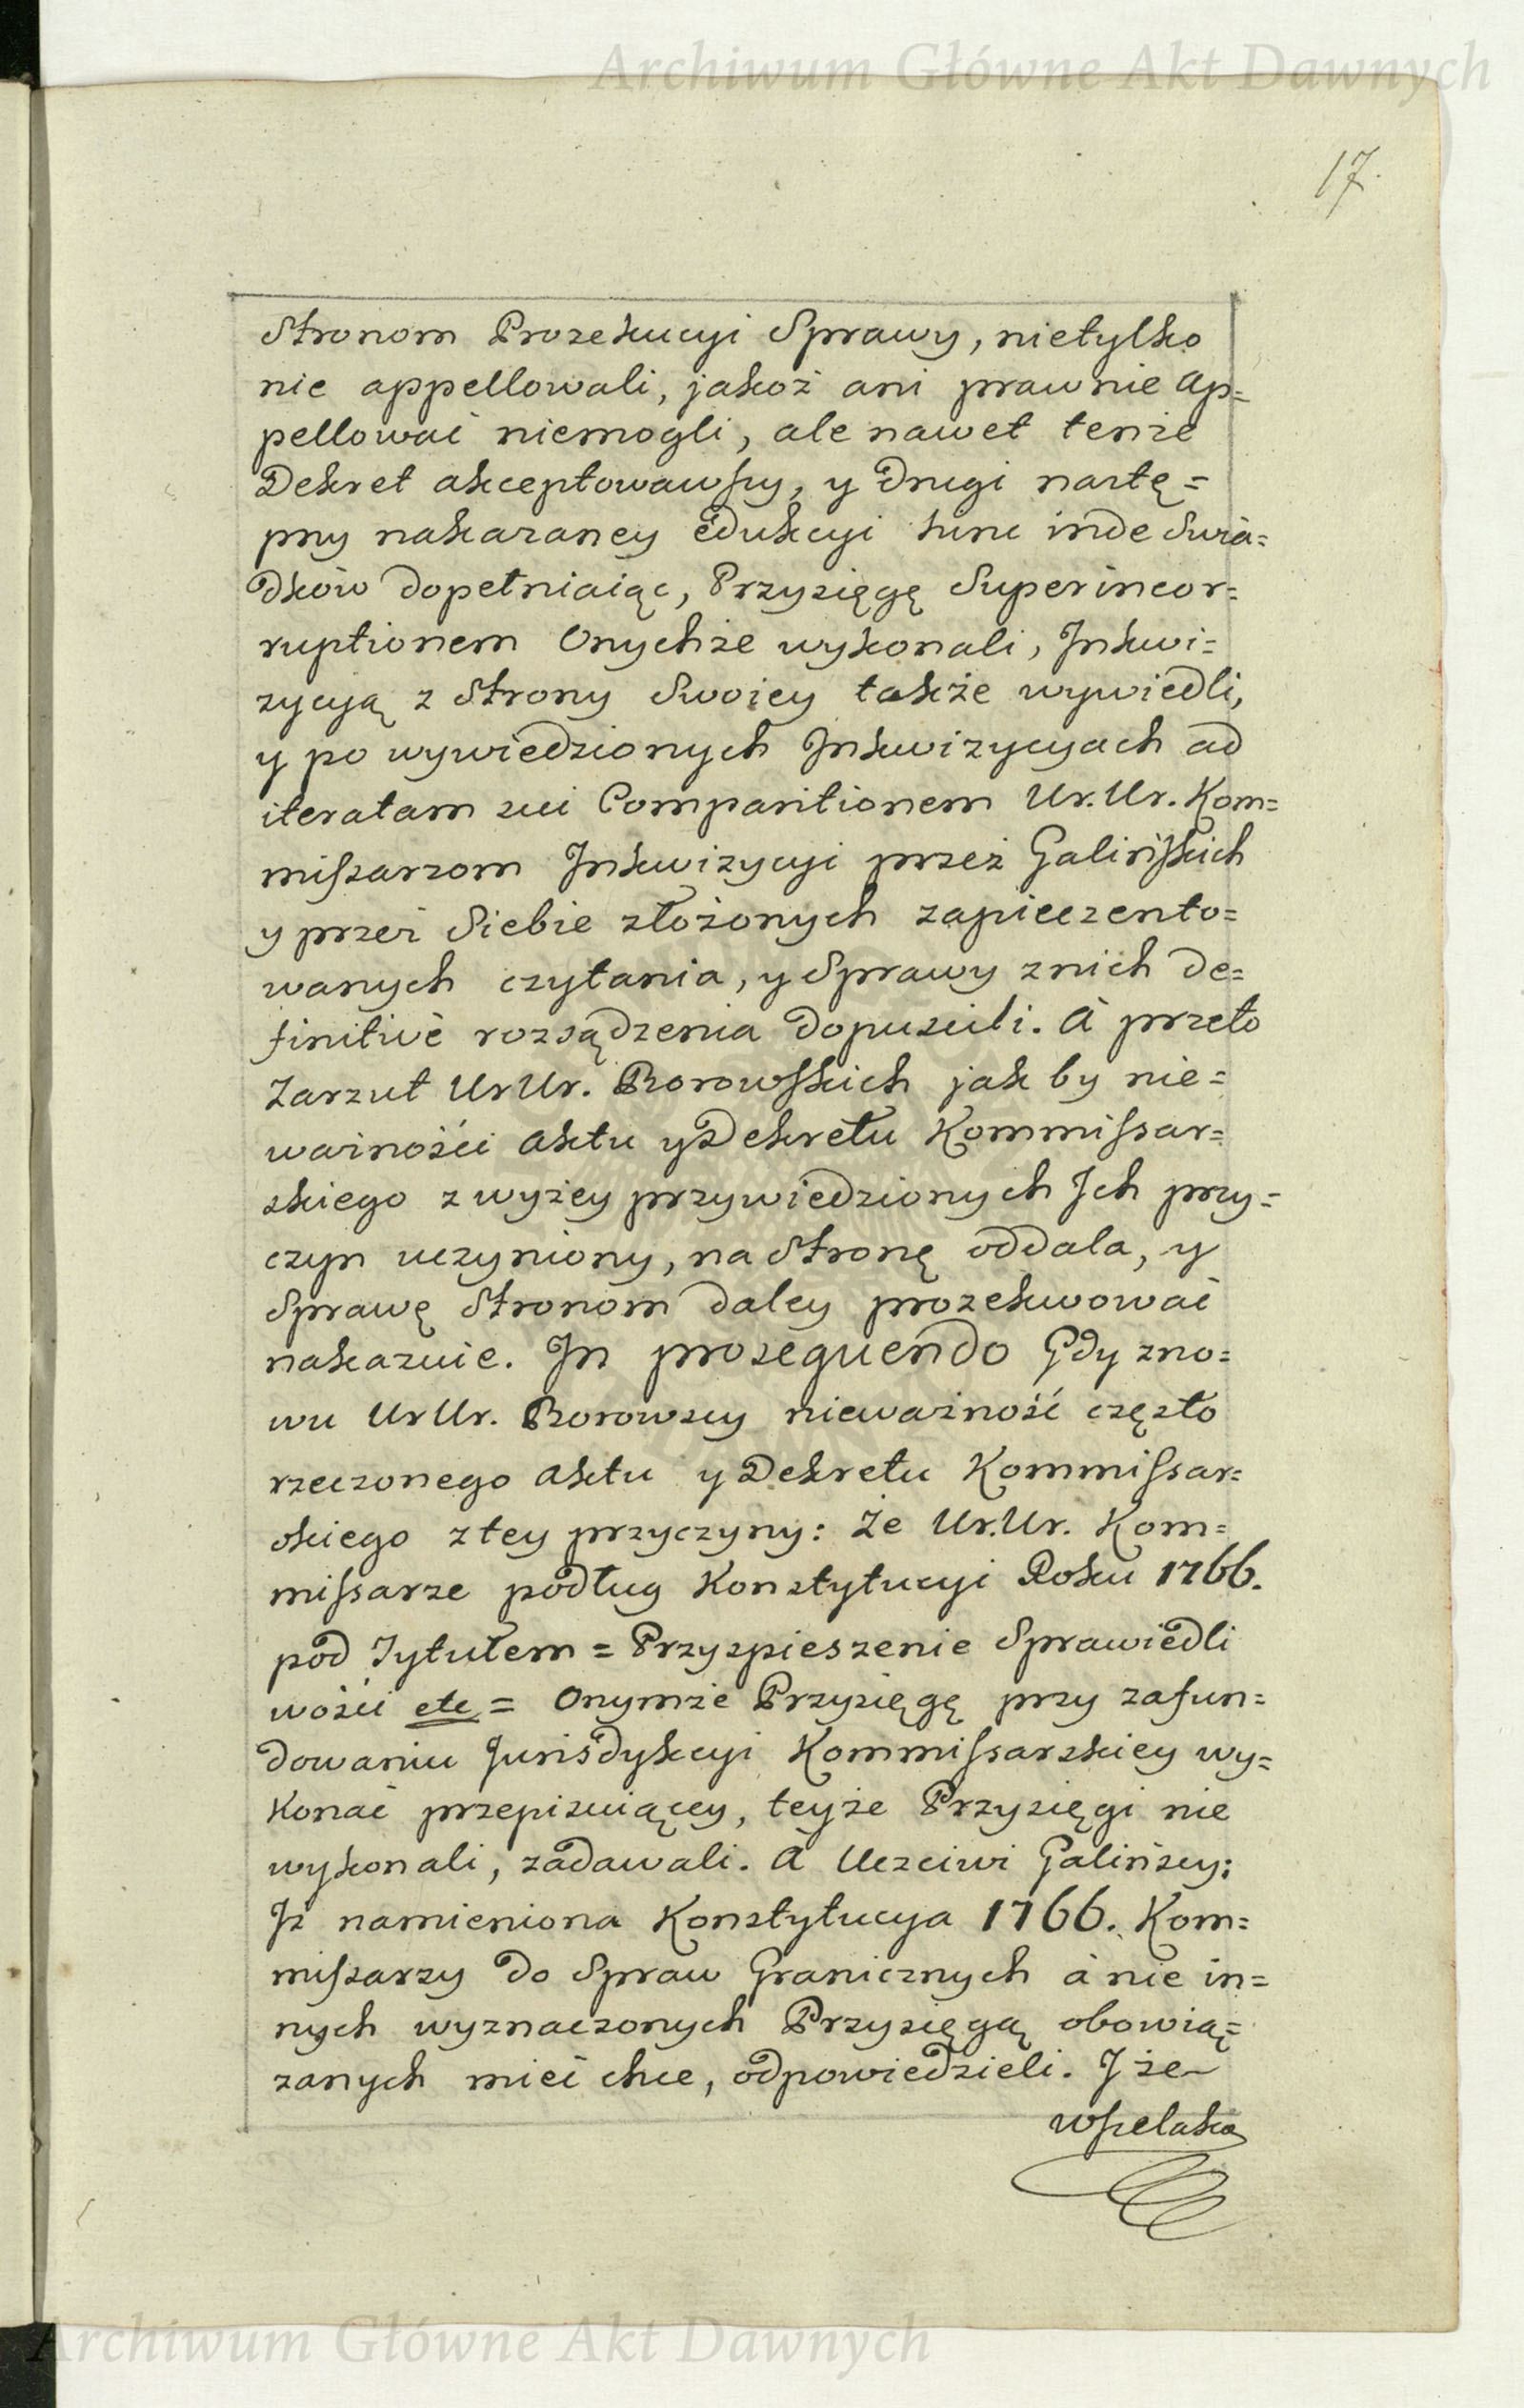 Archiwum Główne Akt Dawnych
17.
Stronom Prozekucyi Sprawy, nietylko
nie appellowali, jakoż ani prawnie ap=
pellować niemogli, ale nawet tenże
Dekret akceptowawszy, y drugi nastę=
pny nakazaney Edukcyi hinc inde Swia=
dków dopełniaiąc, Przysięgę Superincor=
ruptionem Onychże wykonali, Inkwi=
zycyą z Strony Swoiey także wywiedli,
y po wywiedzionych Inkwizycyach ad
iteratam sui Comparitionem Ur. Ur. Kom=
missarzom Inkwizycyi przez Galińskich
y przez Siebie złożonych zapieczento=
wanych czytania, y Sprawy znich de=
finitivè rozsądzenia dopuscili. à przeto
Zarzut UrUr. Borowskich jak by nie=
ważności aktu y Dekretu Kommissar=
skiego z wyżey przywiedzionych Ich przy=
czyn uczyniony, na Stronę oddala, y
Sprawę Stronom daley prozekwować
nakazuie. In prosequendo Gdy zno=
wu UrUr. Borowscy nieważność często
rzeczonego aktu y Dekretu Kommissar=
skiego z tey przyczyny: że Ur. Ur. Kom=
missarze podług Konstytucyi Roku 1766.
pod Tytułem = Przyspieszenie Sprawiedli
wości etc = Onymże Przysięgę przy zafun=
dowaniu Jurisdykcyi Kommissarskiey wy=
konać przepisuiącey, teyże Przysięgi nie
wykonali, zadawali. à Uczciwi Galińscy:
Iż namieniona Konstytucya 1766. Kom=
missarzy do Spraw Granicznych à nie in=
nych wyznaczonych Przysięgą obowią=
zanych mieć chce, odpowiedzieli. I że
wszelaka
Archiwum Główne Akt Dawnych